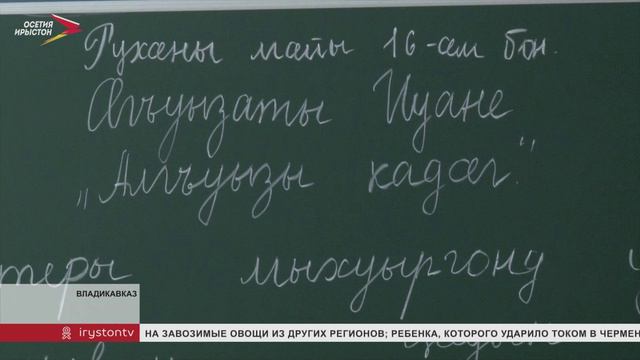 ОСЕТИЯ
ИРЫСТОН
Рухæны мæйы 16-æм бон.
Ялгъуызаты Иуане
„Алгъуызы кадæг“.
теры мыхуыргонд
ВЛАДИКАВКАЗ
irystontv
НА ЗАВОЗИМЫЕ ОВОЩИ ИЗ ДРУГИХ РЕГИОНОВ; РЕБЕНКА, КОТОРОГО УДАРИЛО ТОКОМ В ЧЕРМЕН